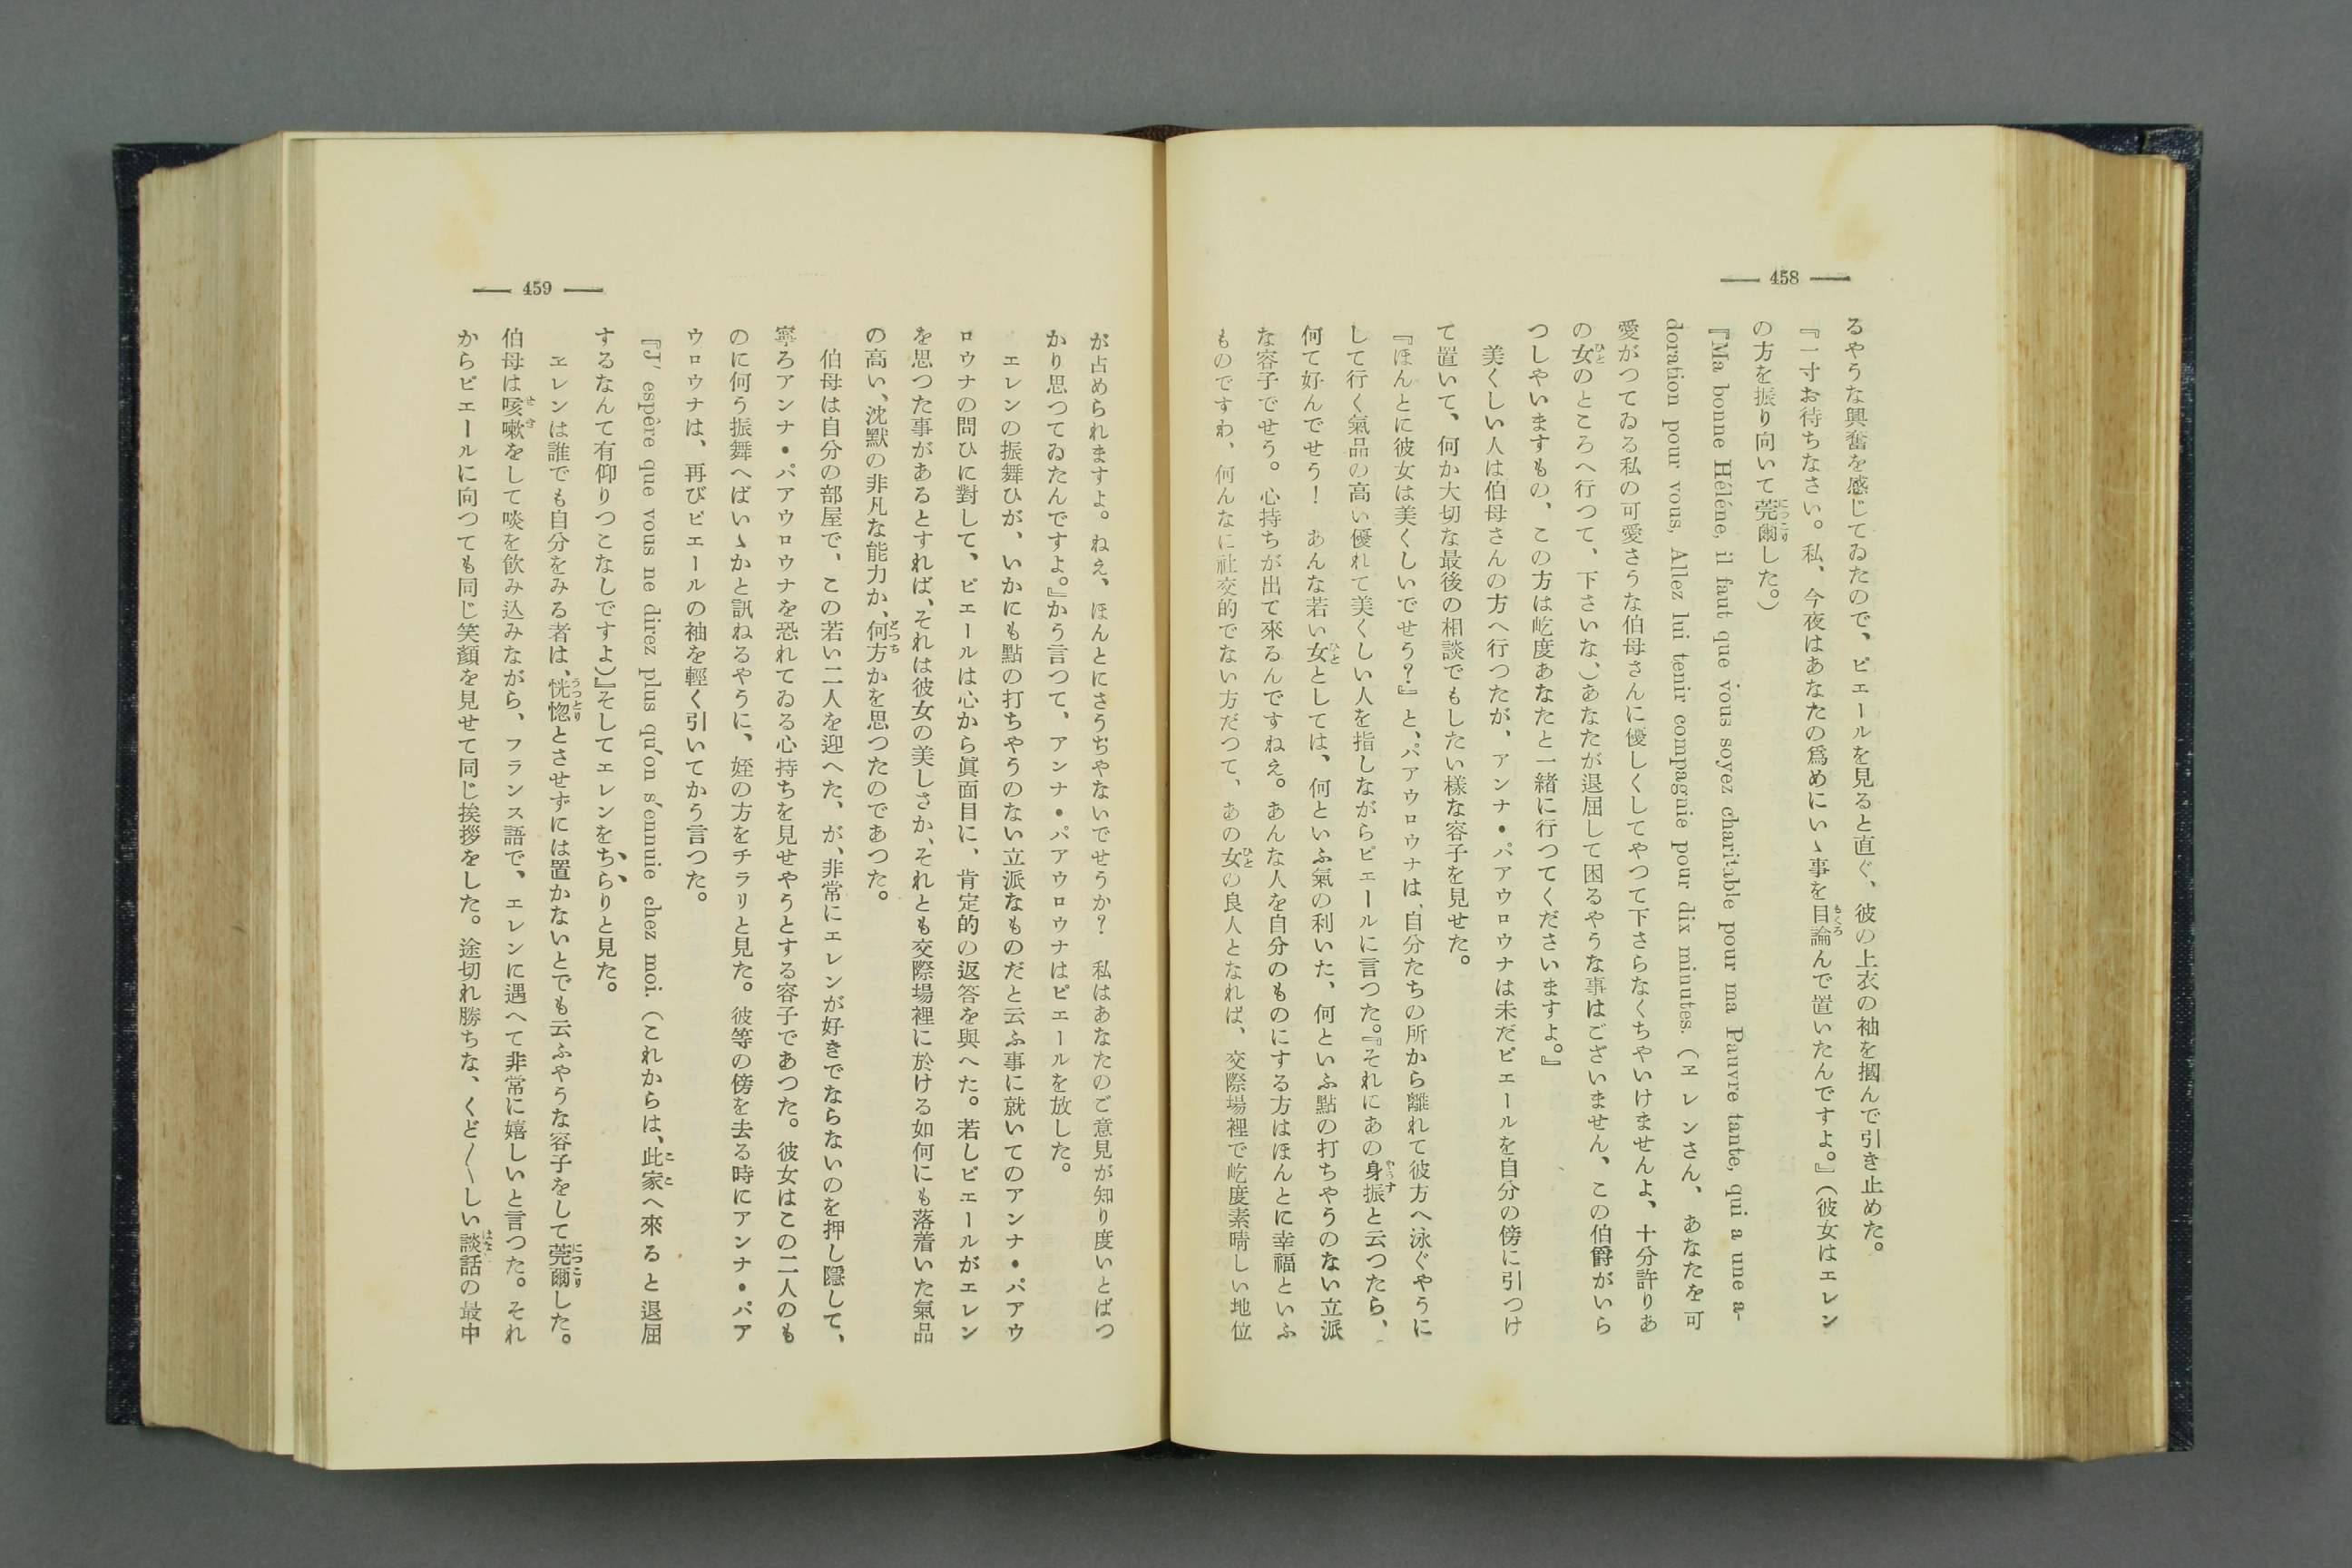 — 458 —
るやうな興奮を感じてゐたので、ピエールを見ると直ぐ、彼の上衣の袖を摑んで引き止めた。
『一寸お待ちなさい。私、今夜はあなたの爲めにいゝ事を目論んで置いたんですよ。』（彼女はエレン
の方を振り向いて莞爾した。）
『Ma bonne Héléne, il faut que vous soyez charitable pour ma Pauvre tante, qui a une a-
doration pour vous, Allez lui tenir compaguie pour dix minutes.（エレンさん、あなたを可
愛がつてゐる私の可愛さうな伯母さんに優しくしてやつて下さらなくちやいけませんよ、十分許りあ
の女のところへ行つて、下さいな、）あなたが退屈して困るやうな事はございません、この伯爵がいら
つしやいますもの、この方は屹度あなたと一緒に行つてくださいますよ。』
美くしい人は伯母さんの方へ行つたが、アンナ・パアウロウナは未だピエールを自分の傍に引つけ
て置いて、何か大切な最後の相談でもしたい樣な容子を見せた。
『ほんとに彼女は美くしいでせう？』と、パアウロウナは、自分たちの所から離れて彼方へ泳ぐやうに
して行く氣品の高い優れて美くしい人を指しながらピエールに言つた。『それにあの身振と云つたら、
何て好んでせう！　あんな若い女としては、何といふ氣の利いた、何といふ點の打ちやうのない立派
な容子でせう。心持ちが出て來るんですねえ。あんな人を自分のものにする方はほんとに幸福といふ
ものですわ、何んなに社交的でない方だつて、あの女の良人となれば、交際場裡で屹度素晴しい地位
— 459 —
が占められますよ。ねえ、ほんとにさうぢやないでせうか？　私はあなたのご意見が知り度いとばつ
かり思つてゐたんですよ。』かう言つて、アンナ・パアウロウナはピエールを放した。
エレンの振舞ひが、いかにも點の打ちやうのない立派なものだと云ふ事に就いてのアンナ・パアウ
ロウナの問ひに對して、ピエールは心から眞面目に、肯定的の返答を與へた。若しピエールがエレン
を思つた事があるとすれば、それは彼女の美しさか、それとも交際場裡に於ける如何にも落着いた氣品
の高い、沈默の非凡な能力か、何方かを思つたのであつた。
伯母は自分の部屋で、この若い二人を迎へた、が、非常にエレンが好きでならないのを押し隱して、
寧ろアンナ・パアウロウナを恐れてゐる心持ちを見せやうとする容子であつた。彼女はこの二人のも
のに何う振舞へばいゝかと訊ねるやうに、姪の方をチラリと見た。彼等の傍を去る時にアンナ・パア
ウロウナは、再びピエールの袖を輕く引いてかう言つた。
『J' espêre que vous ne direz plus qu'on s'ennuie chez moi.（これからは、此家へ來ると退屈
するなんて有仰りつこなしですよ）』そしてエレンをちらりと見た。
ヱレンは誰でも自分をみる者は、恍惚とさせずには置かないとでも云ふやうな容子をして莞爾した。
伯母は咳嗽をして啖を飮み込みながら、フランス語で、エレンに遇へて非常に嬉しいと言つた。それ
からピエールに向つても同じ笑顏を見せて同じ挨拶をした。途切れ勝ちな、くど〱しい談話の最中